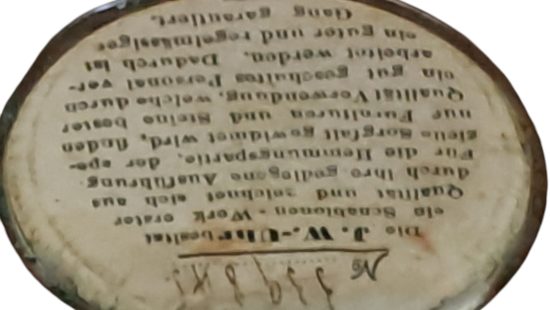 №
Die J. W.-Uhr besitzt
ein Schablonen - Werk erster
Qualität und zeichnet sich aus
durch ihre gediegene Ausführung
Für die Hemmungspartie, der spe-
zielle Sorgfalt gewidmet wird, finden
nur Furnituren und Steine bester
Qualität Verwendung, welche durch
ein gut geschultes Personal ver-
arbeitet werden. Dadurch ist
ein guter und regelmässiger
Gang garantiert.